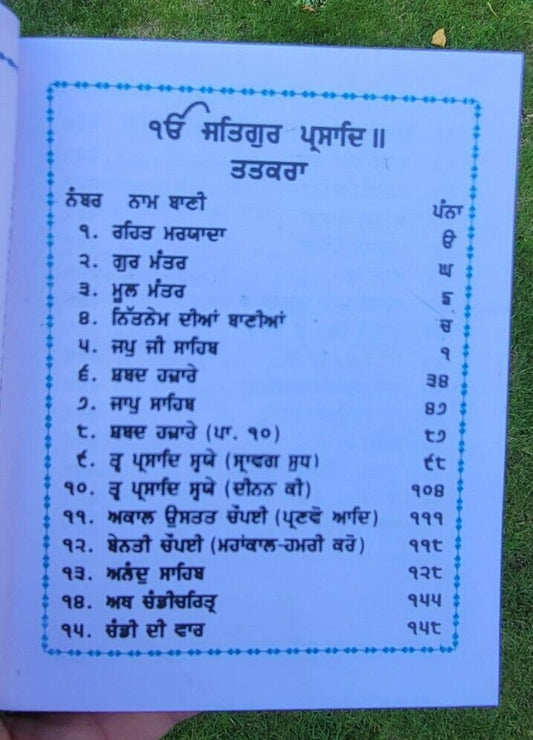 ੴ ਸਤਿਗੁਰ ਪ੍ਰਸਾਦਿ॥
ਤਤਕਰਾ
ਨੰਬਰ ਨਾਮ ਬਾਣੀ ਪੰਨਾ
੧. ਰਹਿਤ ਮਰਯਾਦਾ ੳ
੨. ਗੁਰ ਮੰਤਰ ਘ
੩. ਮੂਲ ਮੰਤਰ ਙ
੪. ਨਿੱਤਨੇਮ ਦੀਆਂ ਬਾਣੀਆਂ ਚ
੫. ਜਪੁ ਜੀ ਸਾਹਿਬ ੧
੬. ਸ਼ਬਦ ਹਜ਼ਾਰੇ ੩੪
੭. ਜਾਪੁ ਸਾਹਿਬ ੪੭
੮. ਸ਼ਬਦ ਹਜ਼ਾਰੇ (ਪਾ. ੧੦) ੮੭
੯. ਤ੍ਵ ਪ੍ਰਸਾਦਿ ਸ੍ਵਯੇ (ਸ੍ਰਾਵਗ ਸੁਧ) ੯੮
੧੦. ਤ੍ਵ ਪ੍ਰਸਾਦਿ ਸ੍ਵਯੇ (ਦੀਨਨ ਕੀ) ੧੦੪
੧੧. ਅਕਾਲ ਉਸਤਤ ਚੌਪਈ (ਪ੍ਰਣਵੋ ਆਦਿ) ੧੧੧
੧੨. ਬੇਨਤੀ ਚੌਪਈ (ਮਹਾਂਕਾਲ-ਹਮਰੀ ਕਰੋ) ੧੧੮
੧੩. ਅਨੰਦੁ ਸਾਹਿਬ ੧੨੮
੧੪. ਅਥ ਚੰਡੀਚਰਿਤ੍ਰ ੧੫੫
੧੫. ਚੰਡੀ ਦੀ ਵਾਰ ੧੫੮